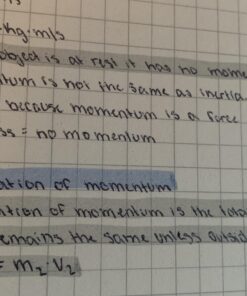 kg·m/s
object is at rest it has no mome
ntum is not the same as inertia
because momentum is a force
ss = no momentum
ation of momentum
ation of momentum is the tota
emains the same unless outsid
= m₂ V₂